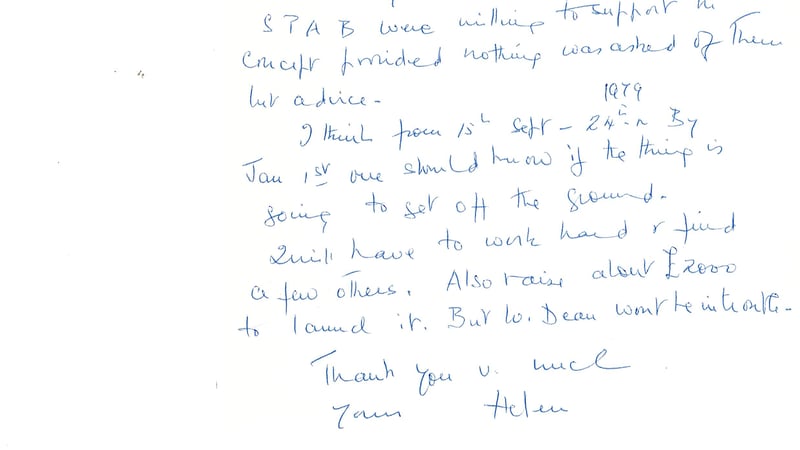 SPAB were willing to support the
concept provided nothing was asked of Them
but advice -
1979
I think from 15th Sept - 24th By
Jan 1st one should know if the thing is
going to get off the ground.
I will have to work hard & find
a few others. Also raise about £2000
to launch it. But W. Dean wont be
Thank you v. much
Yours Helen